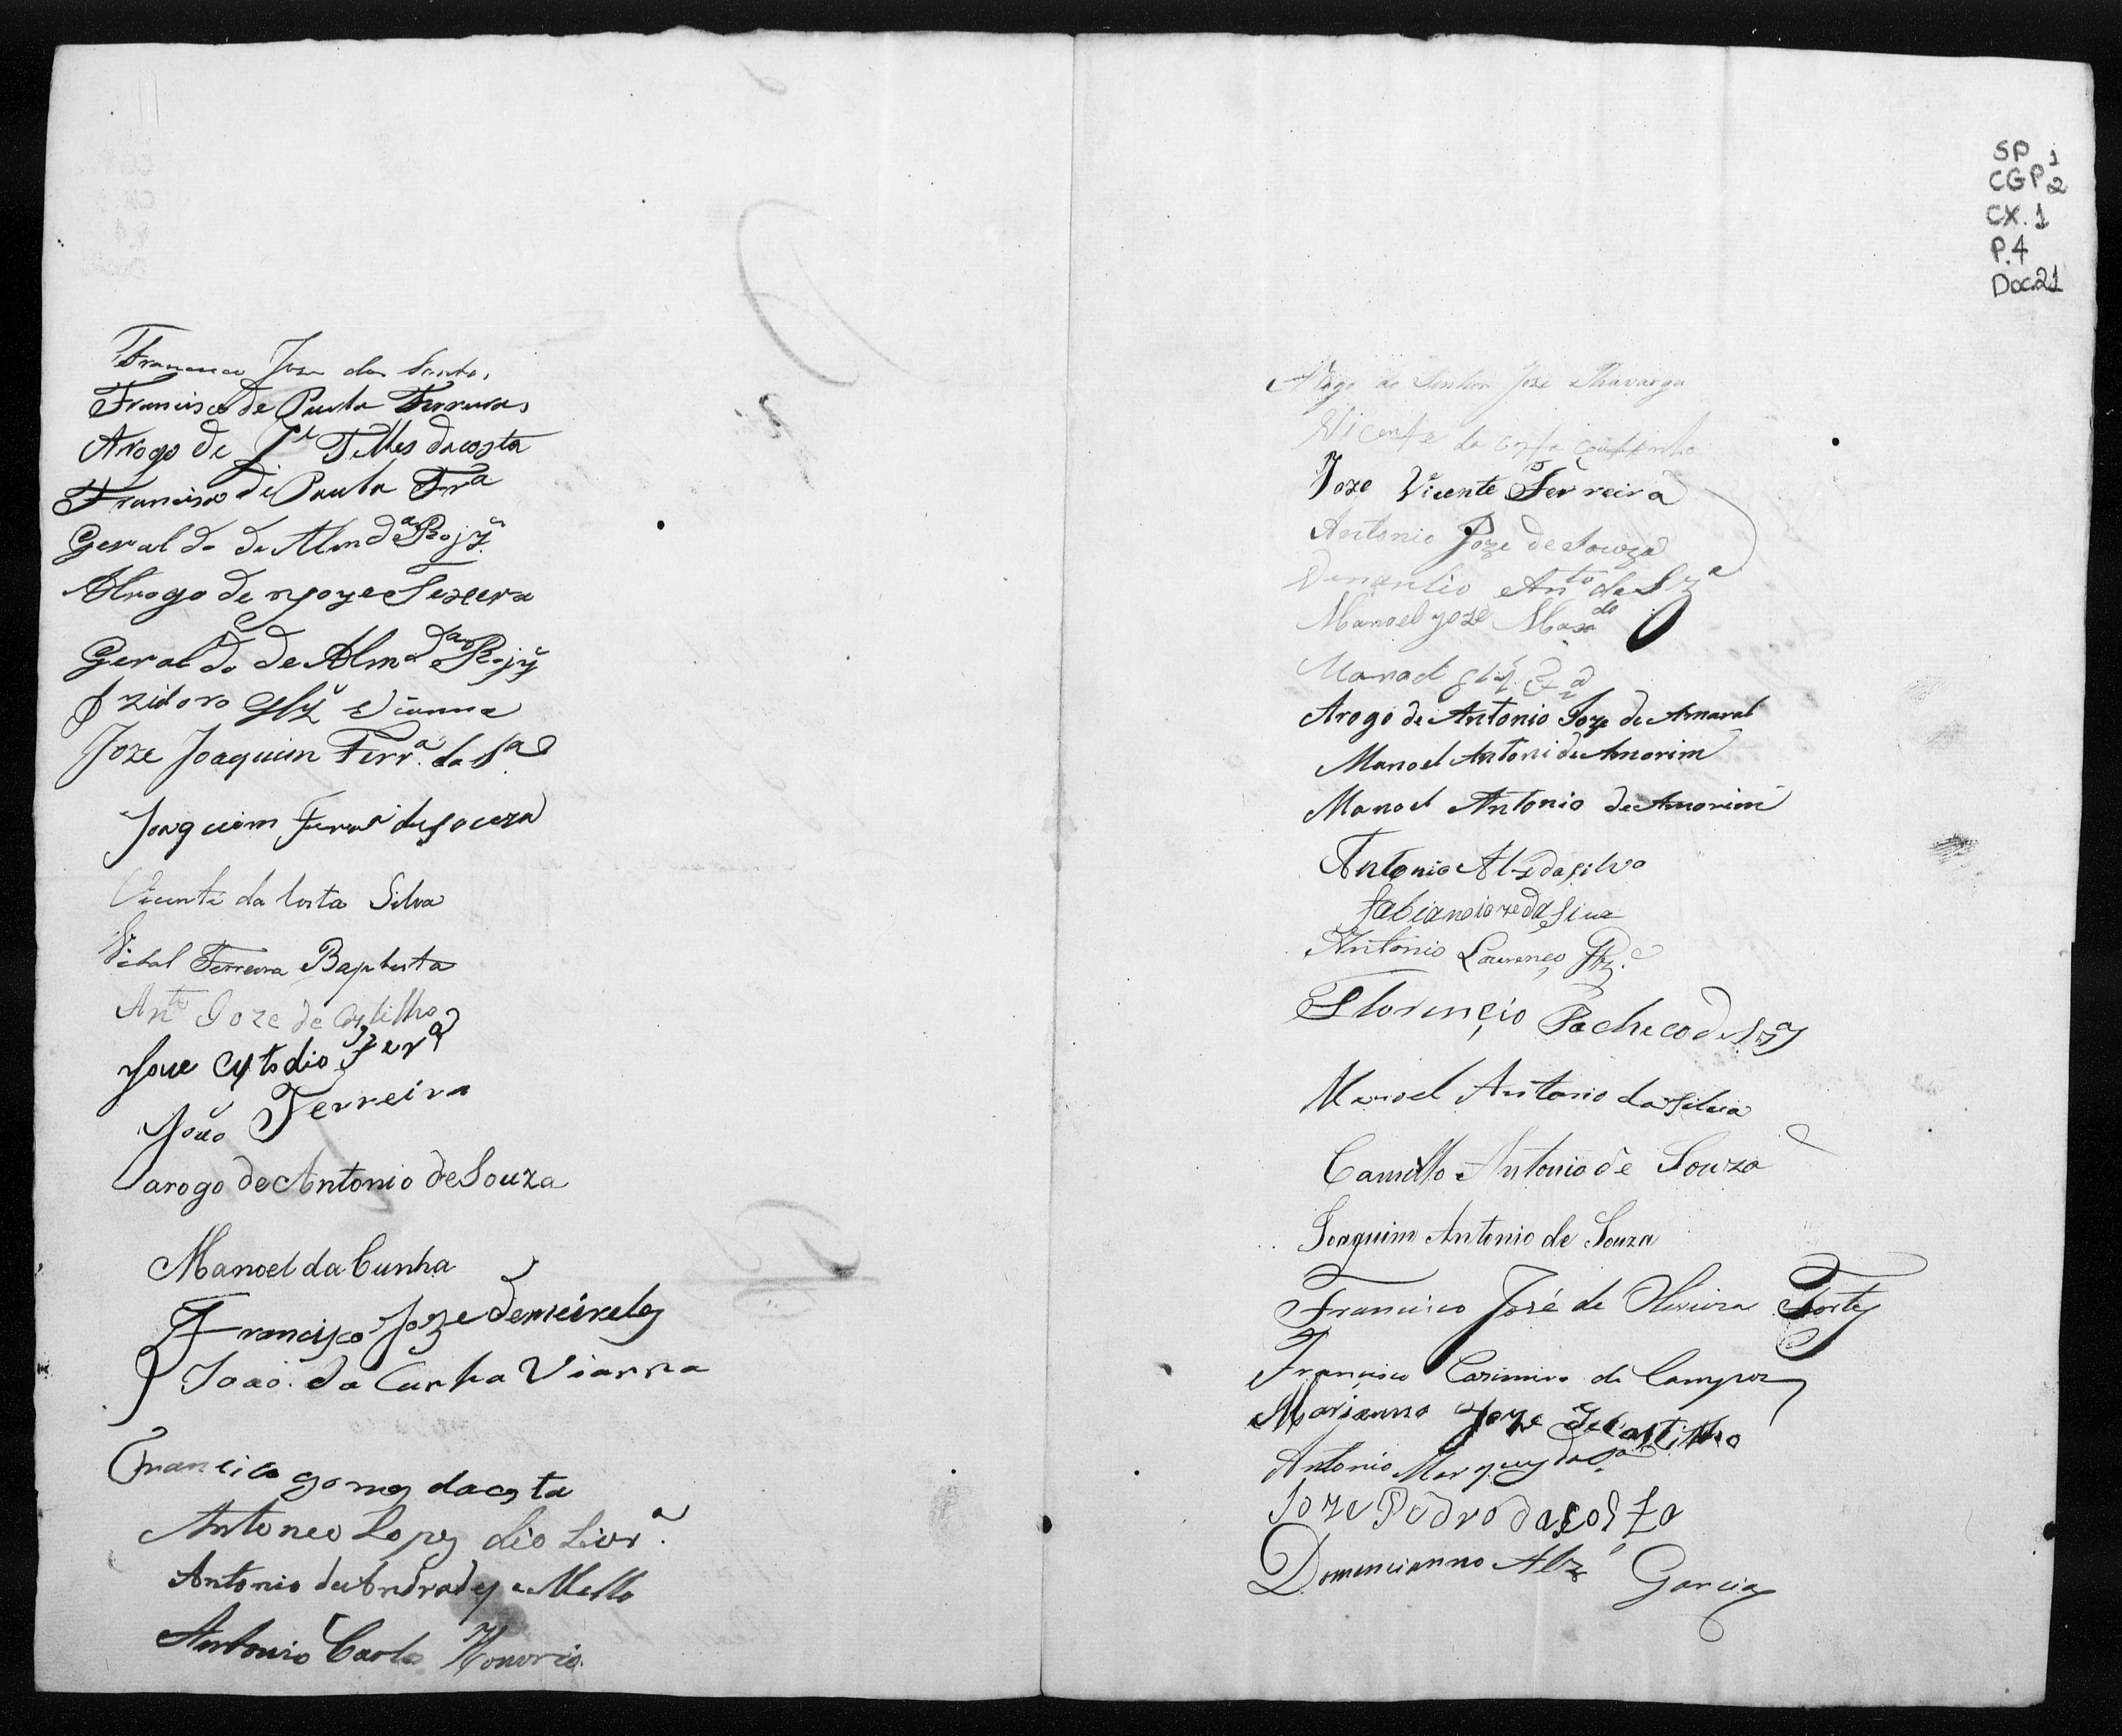 Francisco Joze dos Santos
Francisco de Paula Ferreira
Arogo de Je Telles dacosta
Francisco de Paula Fra
Geraldo de Almda Roiz
Arogo de Joze Texeira
Geraldo de Almda Roiz
Izidoro Glz Vianna
Joze Joaquim Ferra da Sa
Joaquim Ferra de souza
Vicente da Costa Silva
Vital Ferreira Baptista
Anto Joze de Castilho
Joze Custodio Fera
João Ferreira
arogo de Antonio de Souza
Manoel da Cunha
Francisco Joze de meireles
João da Cunha Vianna
Francico gomes dacosta
Antoneo Lopes de oLivra
Antonio de Andrades e Mello
Antonio Carlos Honorio
SP 1
CGP 2
CX. 1
P. 4
Doc 21
Arogo do Senhor Joze
Vicente da costa coutinho
Joze Vicente Ferreira
Antonio Joze de Souza
Venancio Anto de Sza
Manoel Joze Maxdo
Manoel
Arogo de Antonio Joze de Amaral
Manoel Antoni de Amorim
Manoel Antonio de Amorim
Antonio Alz da silva
fabiano joze da silva
Antonio Lourenço
Florençio Pacheco de Sza
Manoel Antonio da Silva
Camillo Antonio de Souza
Joaquim Antonio de Souza
Francisco José de Oliveira Fortes
Francisco Cazimiro de Campos
Marianno Joze de Castilho
Antonio Marques da Sa
Joze Pedro da Costa
Domencianno Alz Garcia